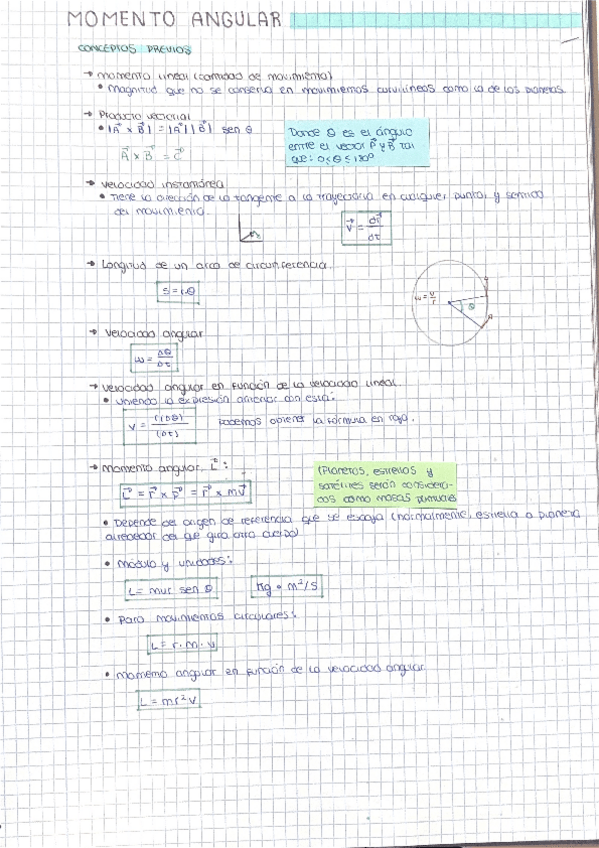 MOMENTO ANGULAR
CONCEPTOS PREVIOS
→ momento lineal (cantidad de movimiento)
• Magnitud que no se conserva en movimientos curvilíneos como la de los planetas.
→ Producto vectorial
• |A⃗ x B⃗| = |A⃗| |B⃗| sen θ
A⃗ x B⃗ = C⃗
Donde θ es el ángulo
entre el vector A⃗ y B⃗ tal
que: 0≤θ≤180°
→ velocidad instantánea
• Tiene la dirección de la tangente a la trayectoria en cualquier punto, y sentido
del movimiento.
v⃗ = dr⃗ / dt
→ Longitud de un arco de circunferencia.
s = r.θ
ω = v/r
θ
→ velocidad angular
ω = Δθ / Δt
→ velocidad angular en función de la velocidad lineal
• uniendo la expresión anterior con esta:
v = r(Δθ) / (Δt)
podemos obtener la fórmula en rojo.
→ momento angular, L⃗:
L⃗ = r⃗ x p⃗ = r⃗ x mv⃗
(Planetas, estrellas y
satélites serán considera-
dos como masas puntuales
• Depende del origen de referencia que se escoja (normalmente, estrella o planeta
alrededor del que gira otro cuerpo)
• módulo y unidades:
L = mvr sen θ
Kg • m²/s
• Para movimientos circulares:
L = r.m.v
• momento angular en función de la velocidad angular
L = mr²v